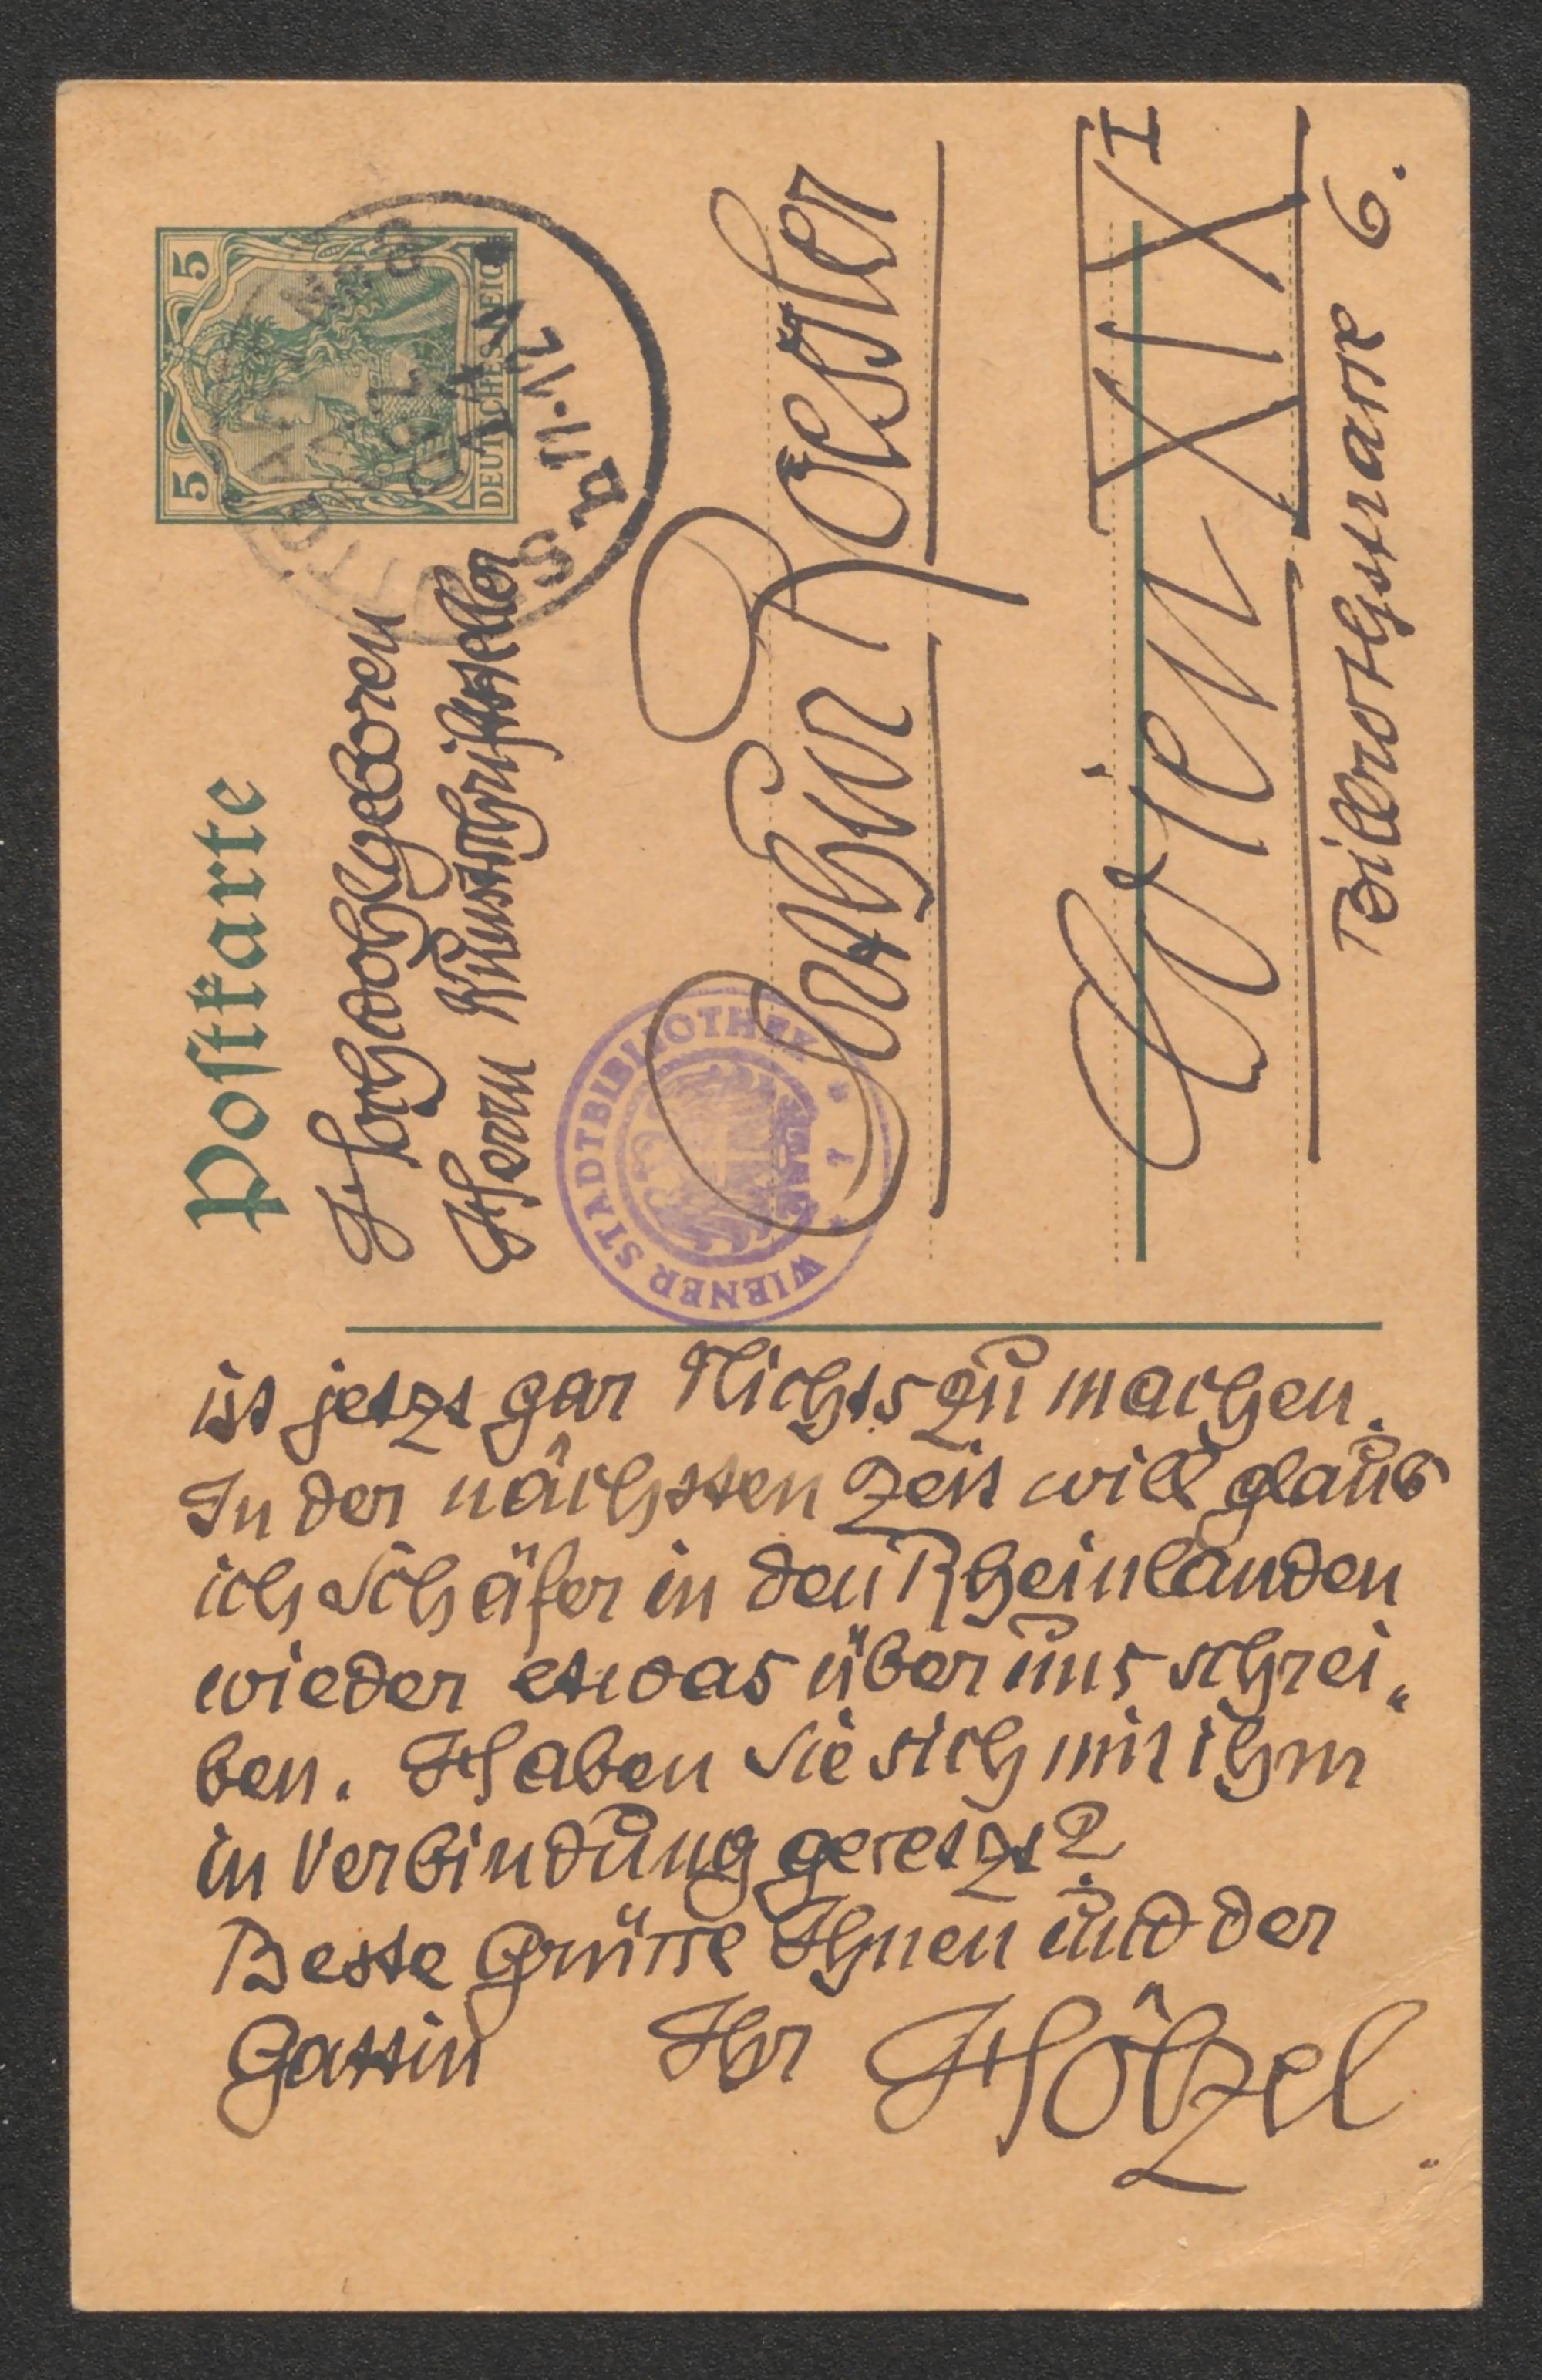 Postkarte
5 5
DEUTSCHES REICH
Hochwohlgeboren
Herrn Kunstschriftsteller
Arthur Roessler
Wien XIX I
Billrothstrasse 6.
WIENER STADTBIBLIOTHEK
ist jetzt gar Nichts zu machen.
In der nächsten Zeit will glaub
ich Schäfer in den Rheinlanden
wieder etwas über uns schrei„
ben. Haben Sie sich mit ihm
in Verbindung gesetzt?
Beste Grüsse Ihnen und der
Gattin Ihr Hölzel.